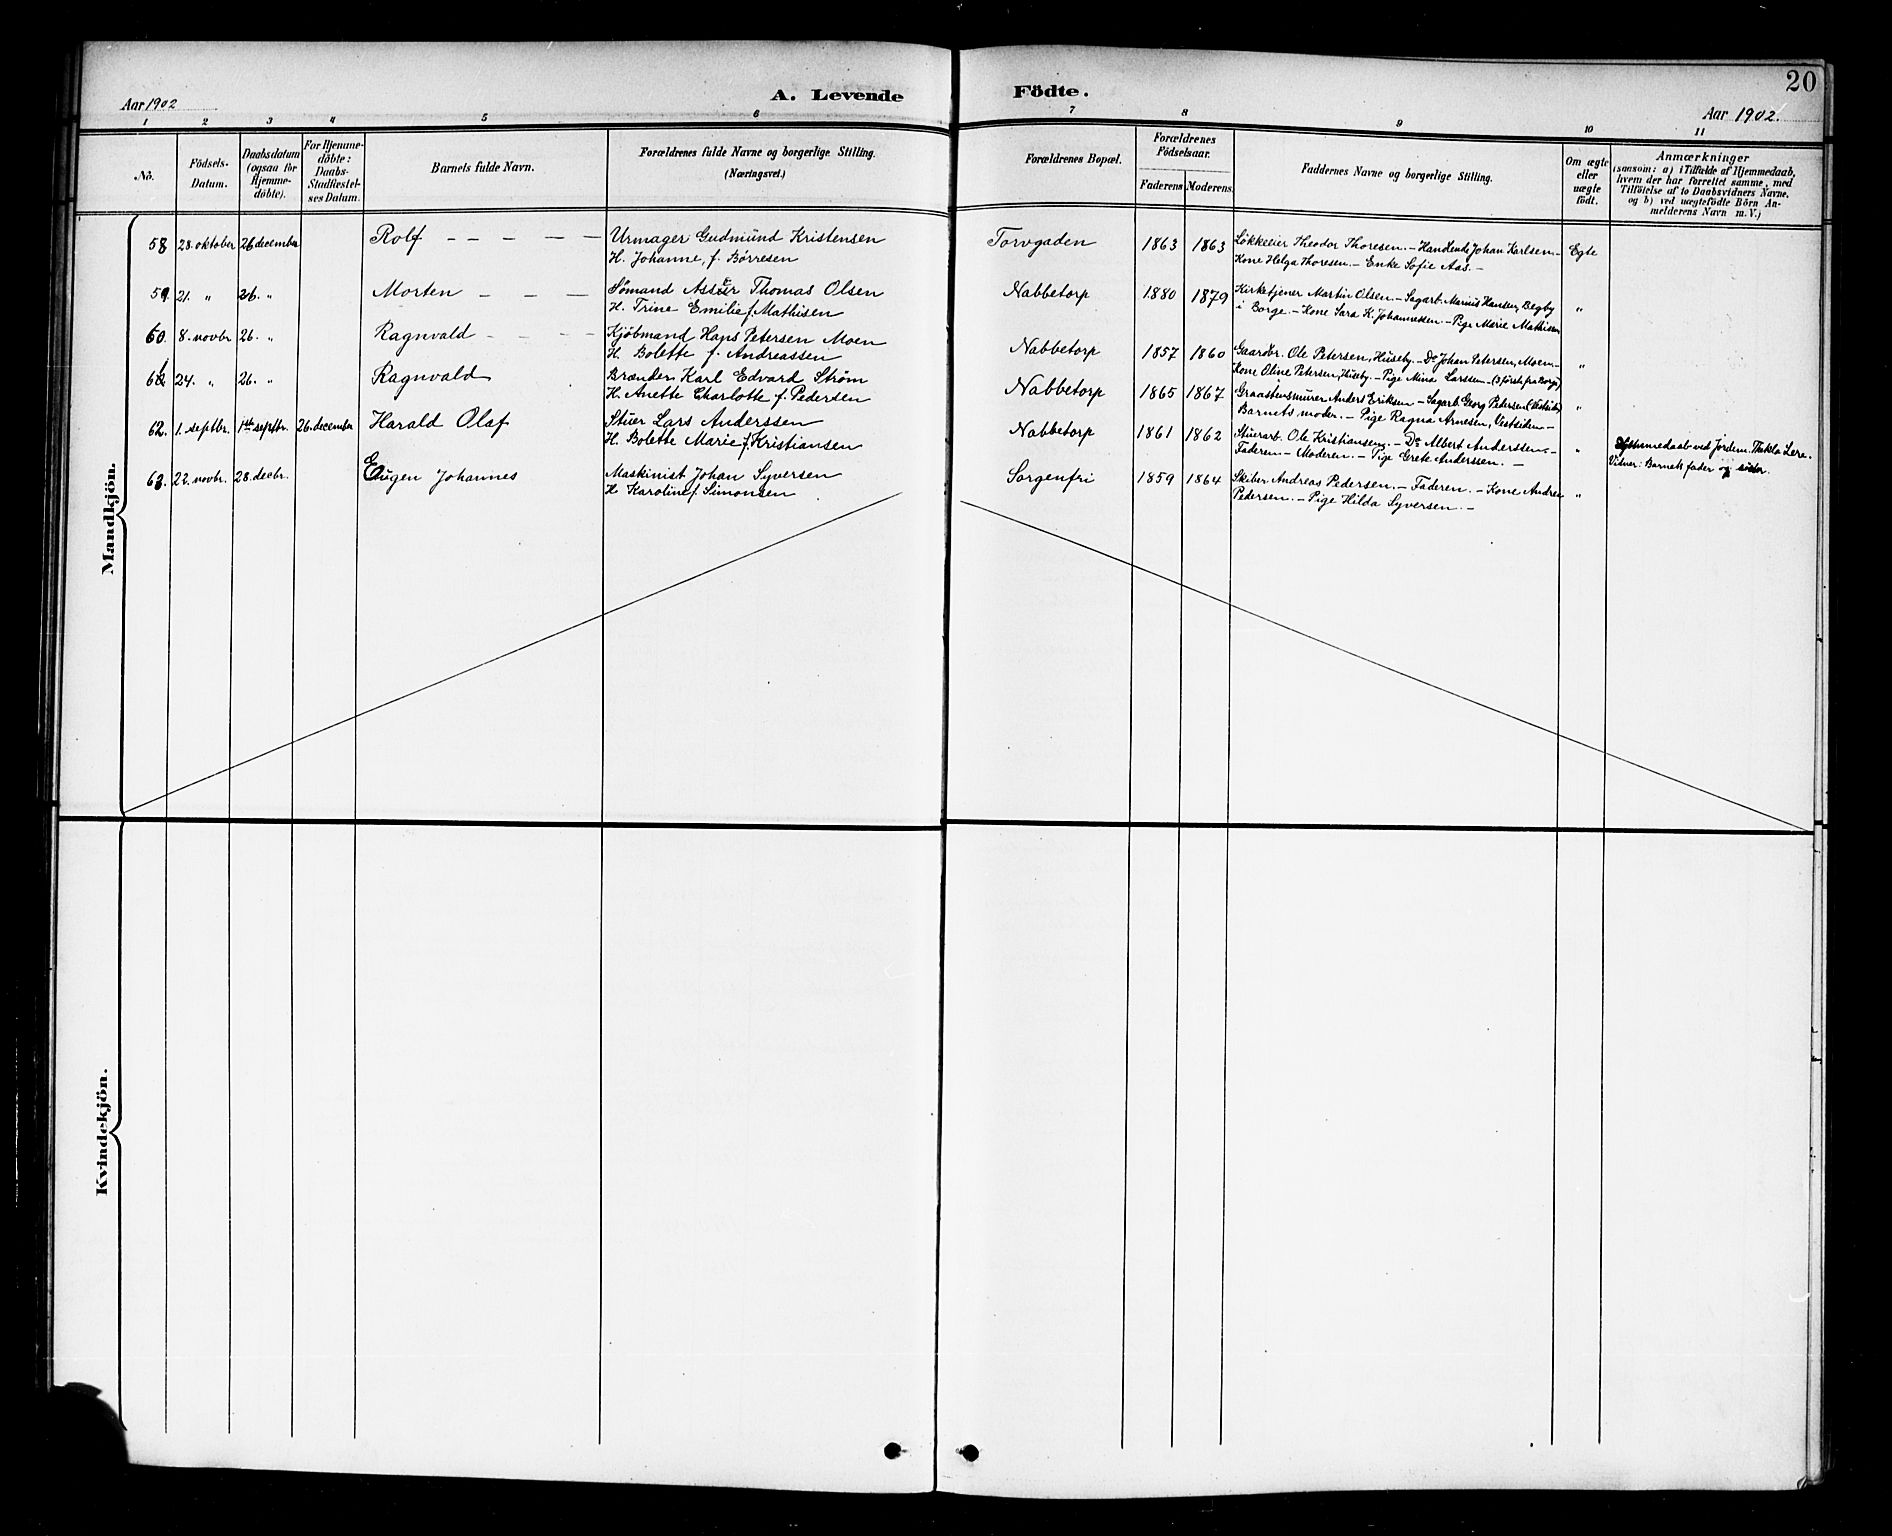 20
Aar 1902
A. Levende Födte.
Aar 1902.
1 2 3 4 5 6 7 8 9 10 11
No.
Födsels-Datum.
Daabsdatum (ogsaa for Hjemme-döbte).
For Hjemme-döbte: Daabs-Stadfæstel-ses Datum.
Barnets fulde Navn.
Forældrenes fulde Navne og borgerlige Stilling.
(Næringsvei.)
Forældrenes Bopæl.
Forældrenes Födselsaar.
Faderens Moderens
Faddernes Navne og borgerlige Stilling.
Om ægte eller uægte födt.
Anmærkninger
(saasom: a) i Tilfælde af Hjemmedaab,
hvem der har forrettet samme, med
Tilföielse af to Daabsvidners Navne.
og b) ved uægtefödte Börn An-
melderens Navn m. V.)
Mandkjön.
58 28. oktober 26 december Rolf – – – – – Urmager Gudmund Kristensen Torvgaden 1863 1863 Løkkeeier Theodor Thoresen. – Handlende Johan Karlsen – Egte
H. Johanne, f. Børresen Kone Helga Thoresen. – Enke Sofie Aas. –
59. 21. " 26. " Morten – – – Sømand Thomas Olsen Nabbetorp 1880 1879 Kirketjener Martin Olsen. – Sagarb. Marius Hansen, Begby "
H. Trine Emilie f. Mathisen i Borge. – Kone Sara K. Johannessen – Pige Marie Mathisen
60. 8. novbr 26. " Ragnvald – – – Kjöbmand Hans Petersen Moen Nabbetorp 1857 1860 Gaardbr. Ole Petersen, Huseby. – Do Johan Petersen, Moen – "
H. Bolette f. Andreassen Kone Oline Petersen, Huseby. – Pige Mina Larssen – (3 første fra Borge)
61. 24. " 26. " Ragnvald Brænder Karl Edvard Strøm Nabbetorp 1865 1867 Graastensmurer Anders Eriksen – Sagarb. Georg Pedersen "
H. Anette Charlotte f. Pedersen Barnets moder. – Pige Ragna Arnesen, Vestsiden –
62. 1. septbr. 1ste septbr. 26. december Harald Olaf Stuer Lars Anderssen Nabbetorp 1861 1862 Stuerarb. Ole Kristiansen. – Do Albert Anderssen. – " Hjemmedaab ved Jordem. Thekla Lere.
H. Bolette Marie f. Kristiansen Faderen – Moderen. – Pige Grete Anderssen. – Vidner: Barnets fader og
63. 22. novbr. 28. decbr. Eugen Johannes Maskinist Johan Syversen Sorgenfri 1859 1864 Skiber Andreas Pedersen. – Faderen. – Kone Andrea "
H Karoline f. Simonsen Pedersen. – Pige Hilda Syversen. –
Kvindekjön.